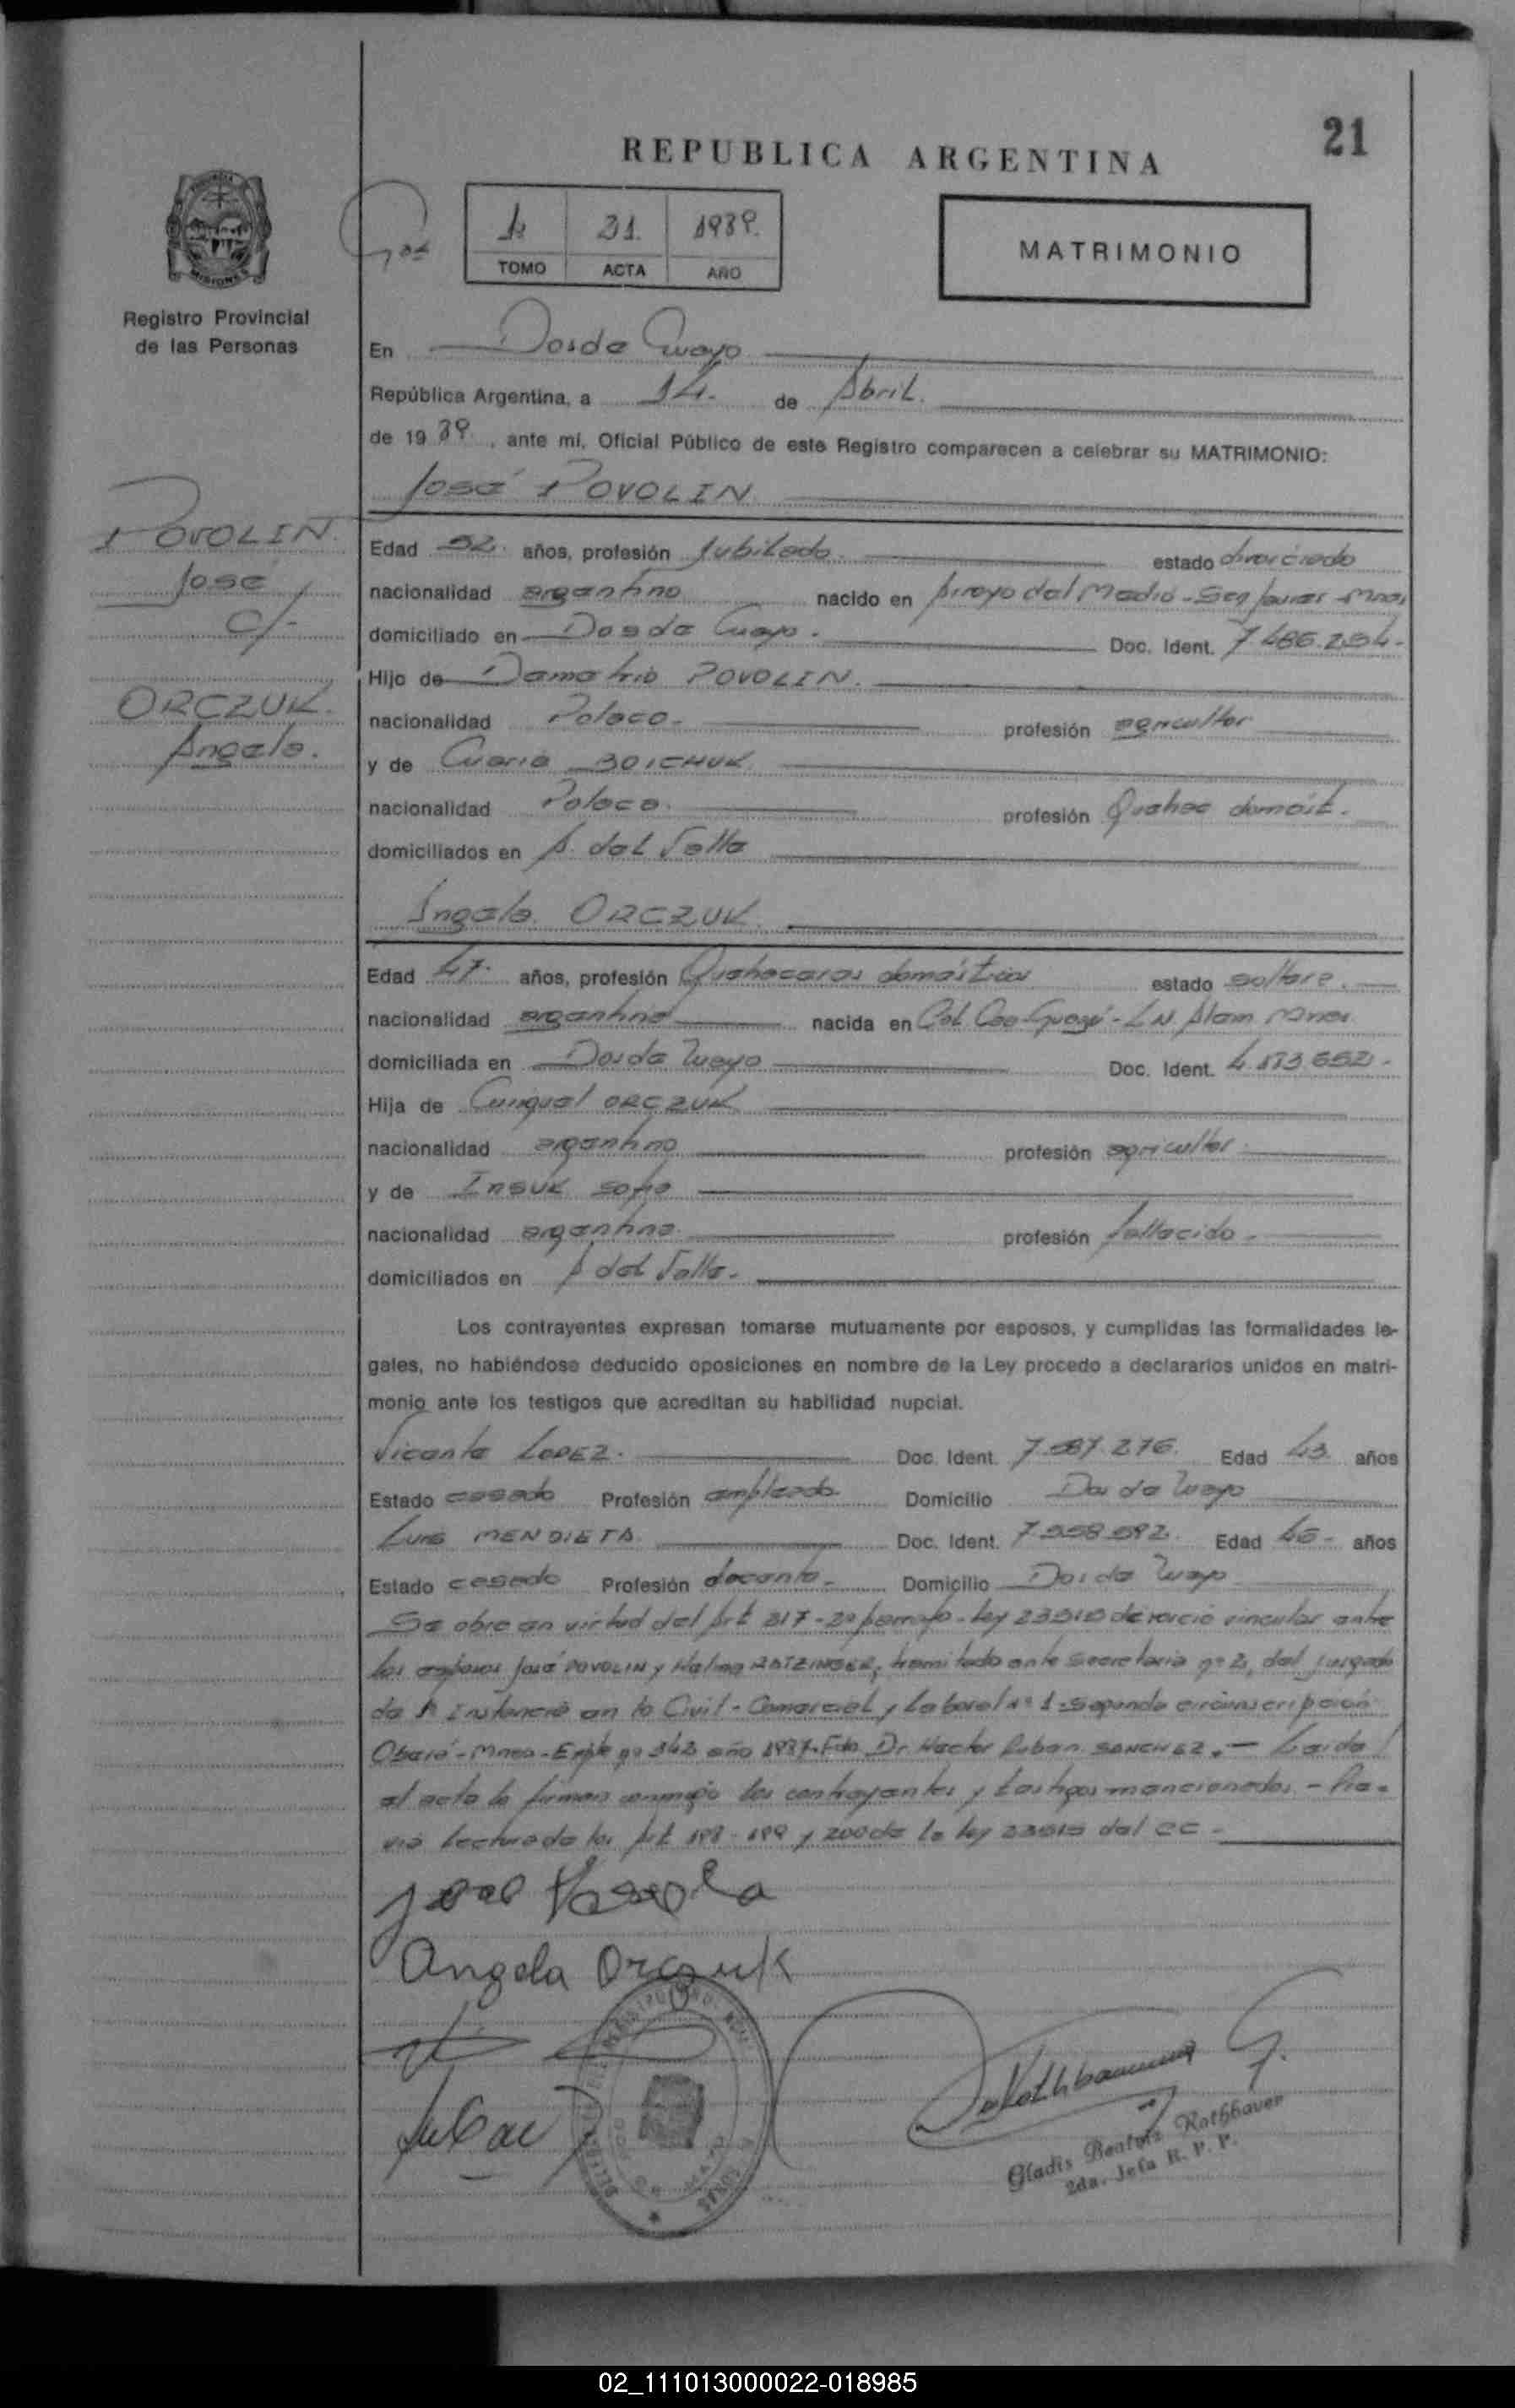 21
REPUBLICA ARGENTINA
1º 21. 1989.
TOMO ACTA AÑO
MATRIMONIO
Registro Provincial
de las Personas
En Dos de Mayo
República Argentina, a 14. de Abril.
de 19 89, ante mí, Oficial Público de este Registro comparecen a celebrar su MATRIMONIO:
José POVOLIN
POVOLIN
José
c/-
ORCZUK.
Angela.
Edad 52 años, profesión Jubilado estado divorciado
nacionalidad argentino nacido en Arroyo del Medio - San Javier Mnes
domiciliado en Dos de Mayo. Doc. Ident. 7.486.254.
Hijo de Demetrio POVOLIN.
nacionalidad Polaco. profesión agricultor
y de María BOICHUK
nacionalidad Polaca. profesión Quehac domést.
domiciliados en A. del Valle
Angela ORCZUK.
Edad 47. años, profesión Quehaceres domésticos estado soltera.
nacionalidad argentina nacida en Col Caa-Guazú - LN Alem Mnes
domiciliada en Dos de Mayo Doc. Ident. 4.173.652.
Hija de Miguel ORCZUK
nacionalidad argentino profesión agricultor
y de sofia
nacionalidad argentina profesión fallecida.
domiciliados en A del Valle.
Los contrayentes expresan tomarse mutuamente por esposos, y cumplidas las formalidades le-
gales, no habiéndose deducido oposiciones en nombre de la Ley procedo a declararlos unidos en matri-
monio ante los testigos que acreditan su habilidad nupcial.
Vicente LOPEZ. Doc. Ident. 7.587.276. Edad 43 años
Estado casado Profesión empleado Domicilio Dos de Mayo
Luis MENDIETA Doc. Ident. 7.558.592. Edad 45- años
Estado casado Profesión docente. Domicilio Dos de Mayo
Se obre en virtud del Art 217 - 2º parrafo - ley 23515 divorcio vincular entre
los esposos José POVOLIN y RATZINGER, tramitado ante Secretaria nº 2, del Juzgado
de 1ª Instancia en lo Civil - Comercial y Laboral nº 1 - segunda circunscripción
Oberá - Mnes - Expte nº 342 año 1987. Fdo Dr Hector Ruben SANCHEZ. - Leida
el acta la firman conmigo los contrayentes y testigos mencionados. - Pre-
via lectura de los Art 198 - 199 y 200 de la ley 23515 del CC -
Angela Orczuk
Gladis Beatriz Rothbauer
2da. Jefa R. P. P.
02_111013000022-018985